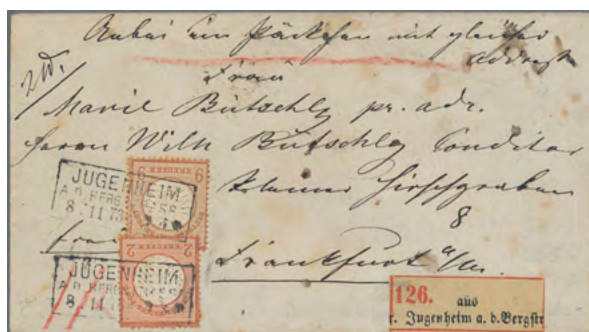 Anbei ein Päckchen mit gleicher
Addresse
2 ℔.
Frau
Marie Bütschly pr. adr.
Herrn Wilh Bütschly Conditor
kleiner Hirschgraben
8
Frankfurt a/M.
9
KREUZER
JUGENHEIM
A.D. BERG
HESS
8 11 73
2
KREUZER
JUGENHEIM
A.D. BERG
HESS
8 11
126.
aus
r. Jugenheim a. d. Bergstr